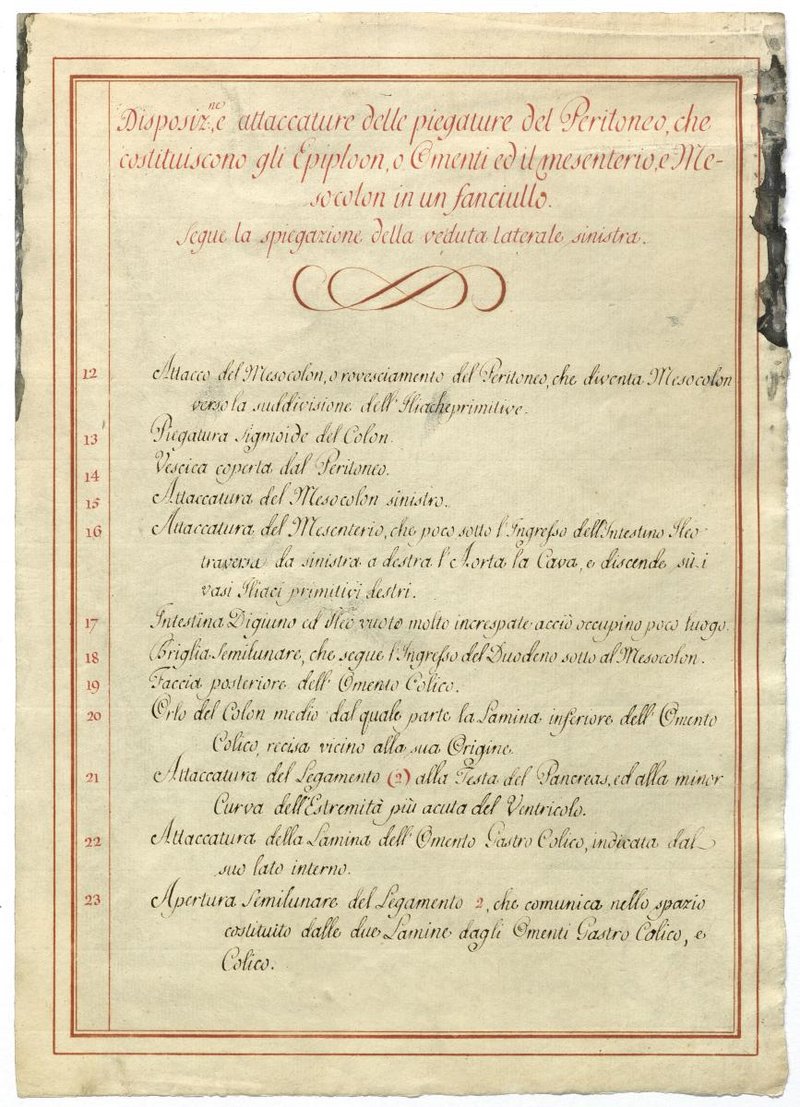 Disposiz.ne, e attaccature delle piegature del Peritoneo, che
costituiscono gli Epiploon, o Omenti ed il mesenterio, e Me-
socolon in un fanciullo.
Segue la spiegazione della veduta laterale sinistra.
12 Attacco del Mesocolon, o rovesciamento del Peritoneo, che diventa Mesocolon
verso la suddivisione dell'Iliache primitive.
13 Piegatura Sigmoide del Colon.
14 Vescica coperta dal Peritoneo.
15 Attaccatura del Mesocolon sinistro.
16 Attaccatura del Mesenterio, che poco sotto l'Ingresso dell'Intestino Ileo
traversa da sinistra a destra l'Aorta la Cava, e discende sù i
vasi Iliaci primitivi destri.
17 Intestina Digiuno ed Ileo vuote molto increspate acciò occupino poco luogo.
18 Briglia Semilunare, che segue l'Ingresso del Duodeno sotto al Mesocolon.
19 Faccia posteriore dell'Omento Colico.
20 Orlo del Colon medio dal quale parte la Lamina inferiore dell'Omento
Colico, recisa vicino alla sua Origine.
21 Attaccatura del Legamento (2) alla Testa del Pancreas, ed alla minor
Curva dell'Estremità più acuta del Ventricolo.
22 Attaccatura della Lamina dell'Omento Gastro Colico, indicata dal
suo lato interno.
23 Apertura Semilunare del Legamento 2, che comunica nello spazio
costituito dalle due Lamine dagli Omenti Gastro Colico, e
Colico.